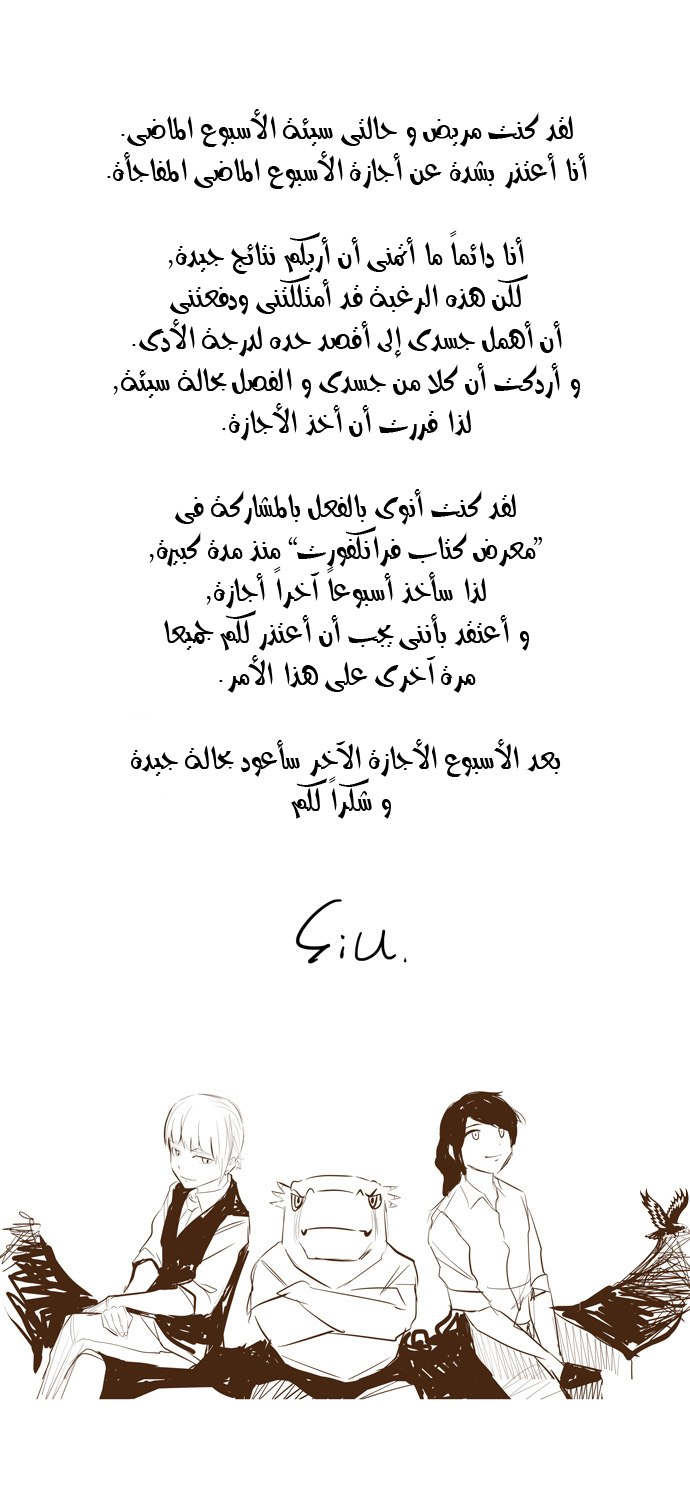 لقد كنت مريض و حالتى سيئة الأسبوع الماضى.
أنا أعتذر بشدة عن أجازة الأسبوع الماضى المفاجأة.
أنا دائماً ما أتمنى أن أريكم نتائج جيدة,
لكن هذه الرغبة قد أمتلكتنى ودفعتنى
أن أهمل جسدى إلى أقصد حده لدرجة الأذى.
و أردكت أن كلا من جسدى و الفصل بحالة سيئة,
لذا قررت أن أخذ الأجازة.
لقد كنت أنوى بالفعل بالمشاركة فى
”معرض كتاب فرانكفورت“ منذ مدة كبيرة,
لذا سأخذ أسبوعاً آخراً أجازة,
و أعتقد بأننى يجب أن أعتذر لكم جميعا
مرة آخرى على هذا الأمر.
بعد الأسبوع الأجازة الآخر سأعود بحالة جيدة
و شكراً لكم
SiU.